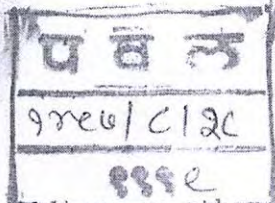 प व ल
१४८७/८/२८
१९९८